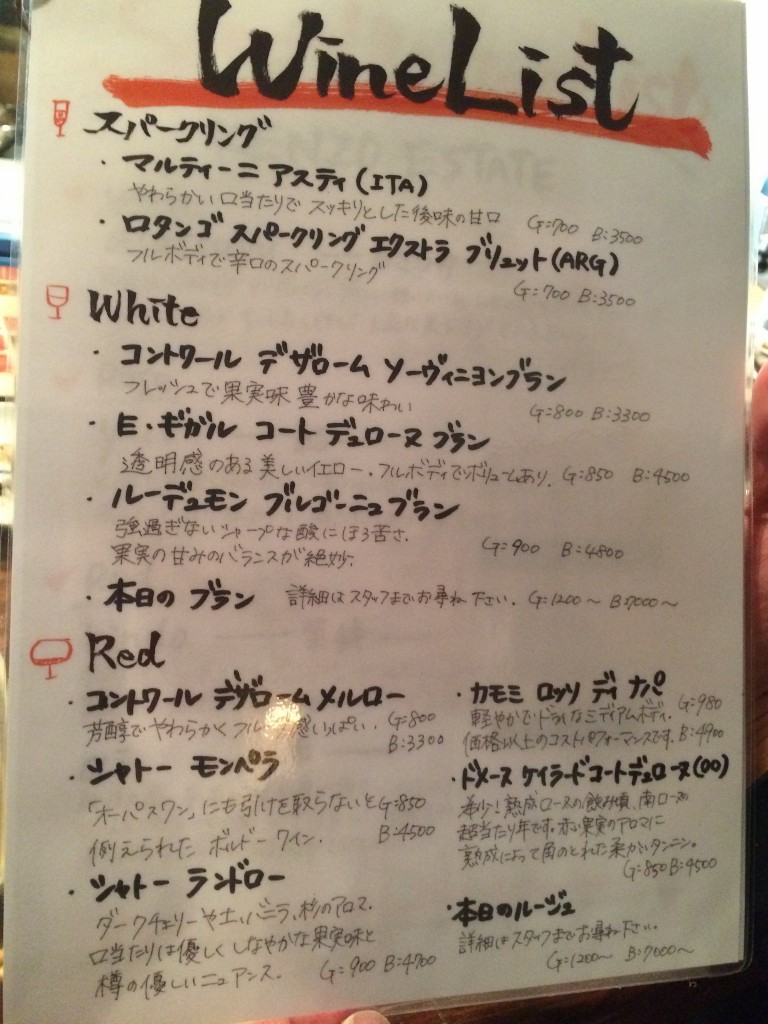 Wine List
スパークリング
・マルティーニ アスティ(ITA)
やわらかい口当たりで スッキリとした後味の甘口 G=700 B=3500
・ロタンゴ スパークリング エクストラ ブリュット(ARG)
フルボディで辛口のスパークリング
G=700 B=3500
White
・コントワール デザローム ソーヴィニヨンブラン
フレッシュで果実味豊かな味わい
G=800 B=3300
・E・ギガル コート デュローヌ ブラン
透明感のある美しいイエロー。フルボディでボリュームあり。 G=850 B=4500
・ルーデュモン ブルゴーニュブラン
強過ぎないシャープな酸にほろ苦さ。
果実の甘みのバランスが絶妙。 G=900 B=4800
・本日の ブラン 詳細はスタッフまでお尋ね下さい。 G=1200〜 B=7000〜
Red
・コントワール デザローム メルロー
芳醇でやわらかく フルーツ感いっぱい。 G=800
B=3300
・シャトー モンペラ
「オーパスワン」にも引けを取らないと G=850
例えられた ボルドーワイン。 B=4500
・シャトー ランドロー
ダークチェリーや土、バニラ、杉のアロマ。
口当たりは優しく しなやかな果実味と
樽の優しいニュアンス。 G=900 B=4700
・カモミ ロッソ ディ ナパ
軽やかでドライなミディアムボディ。 G=980
価格以上のコストパフォーマンスです。 B=4900
・ドメーヌ ケイラードコートデュローヌ(00)
希少!熟成ローヌの飲み頃、南ローヌの
超当たり年です。赤い果実のアロマに
熟成によって角のとれた柔かいタンニン。
G=850 B=4500
・本日のルージュ
詳細はスタッフまでお尋ね下さい。
G=1200〜 B=7000〜